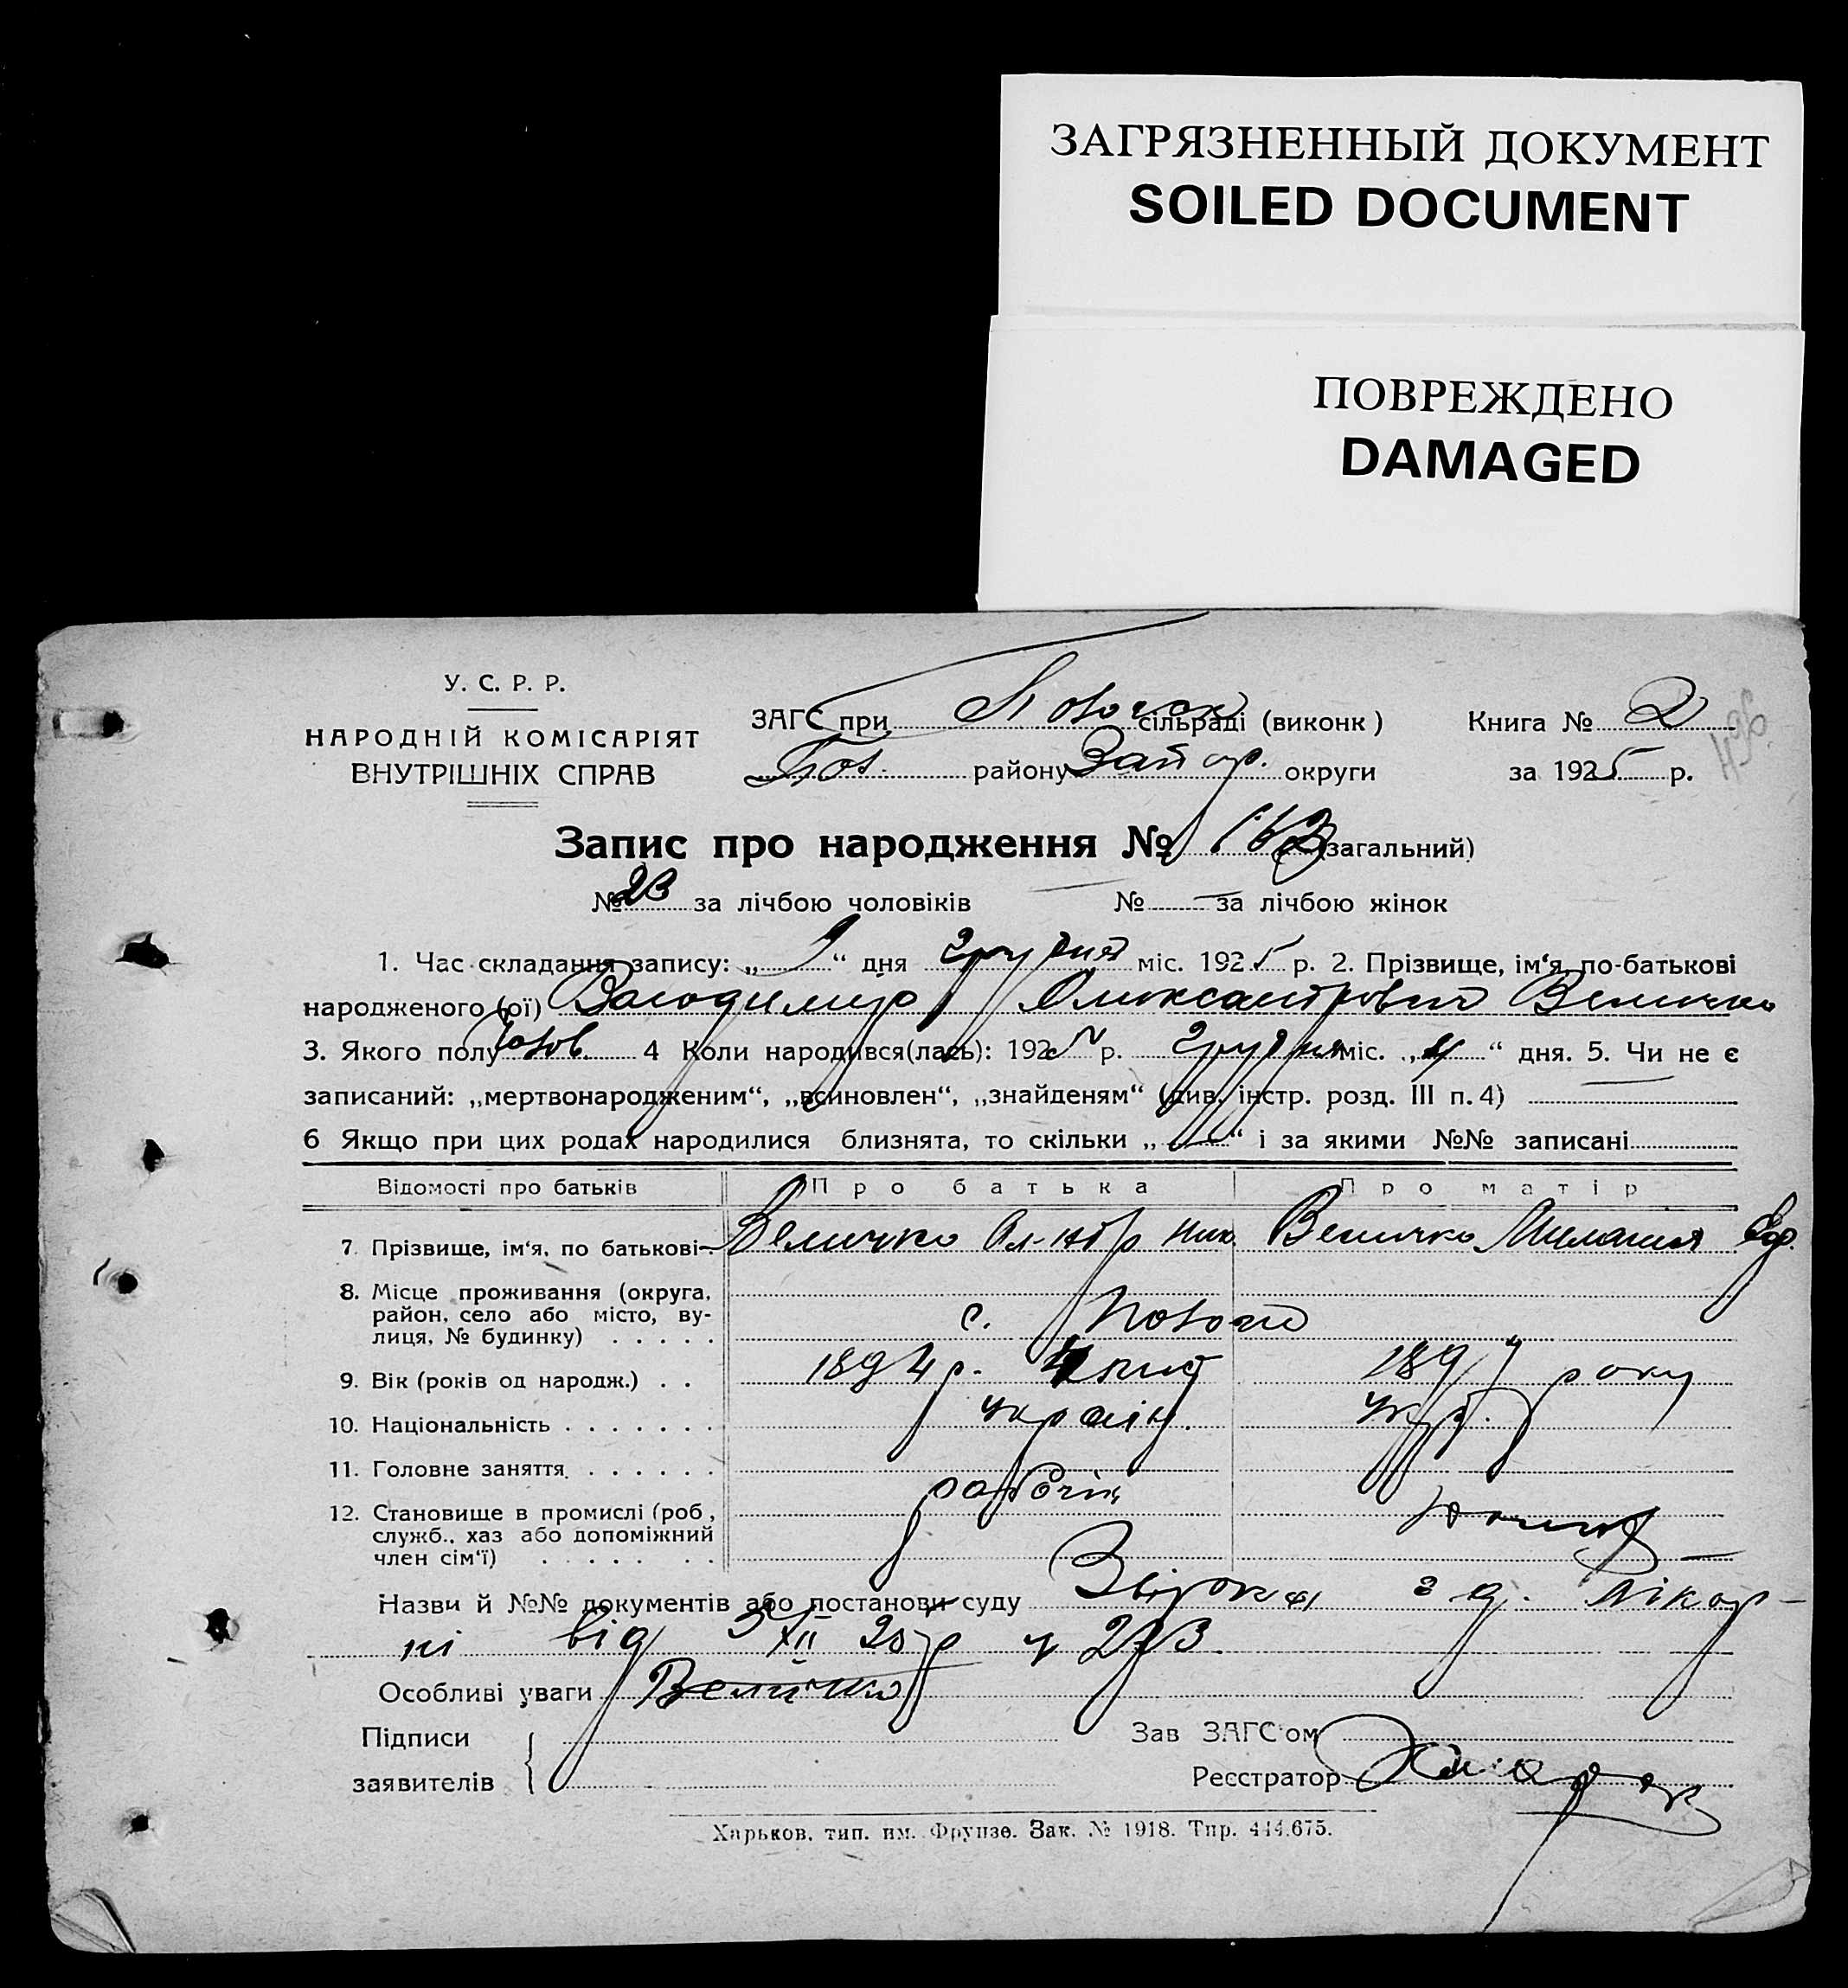 ЗАГРЯЗНЕННЫЙ ДОКУМЕНТ
SOILED DOCUMENT
ПОВРЕЖДЕНО
DAMAGED
У. С. Р. Р.
НАРОДНІЙ КОМІСАРІЯТ
ВНУТРІШНІХ СПРАВ
ЗАГС при сільраді (виконк) Книга № 2
району Запор. округи за 1925 р.
Запис про народження № (загальний)
№ 23 за лічбою чоловіків № — за лічбою жінок
1. Час складання запису: „9“ дня грудня міс. 1925 р. 2. Прізвище, ім‘я, по-батькові
народженого (ої) Володимир Олександрович Величко
3. Якого полу чолов. 4 Коли народився(лась): 1925 р. грудня міс. „4“ дня. 5. Чи не є
записаний: „мертвонародженим“, „всиновлен“, „знайденям“ (див. інстр. розд. III п. 4)
6 Якщо при цих родах народилися близнята, то скільки „—“ і за якими №№ записані
Відомості про батьків Про батька Про матір
7. Прізвище, ім‘я, по батькові Величко Ол-ндр Ник. Величко Меланія
8. Місце проживання (округа,
район, село або місто, ву-
лиця, № будинку) . . . . .
с.
9. Вік (років од народж.) . . 1894 р. 1897 року
10. Національність . . . . . . . україн. укр.
11. Головне заняття. . . . . . .
робочий
12. Становище в промислі (роб,
служб., хаз або допоміжний
член сім‘ї) . . . . . . .
Назви й №№ документів або постанови суду з д. лікар-
ні від 5/XII 25 р ч 273
Особливі уваги Величко
Підписи
заявителів
Зав ЗАГС‘ом
Реєстратор
Харьков, тип. им. Фрунзе. Зак. № 1918. Тир. 444.675.